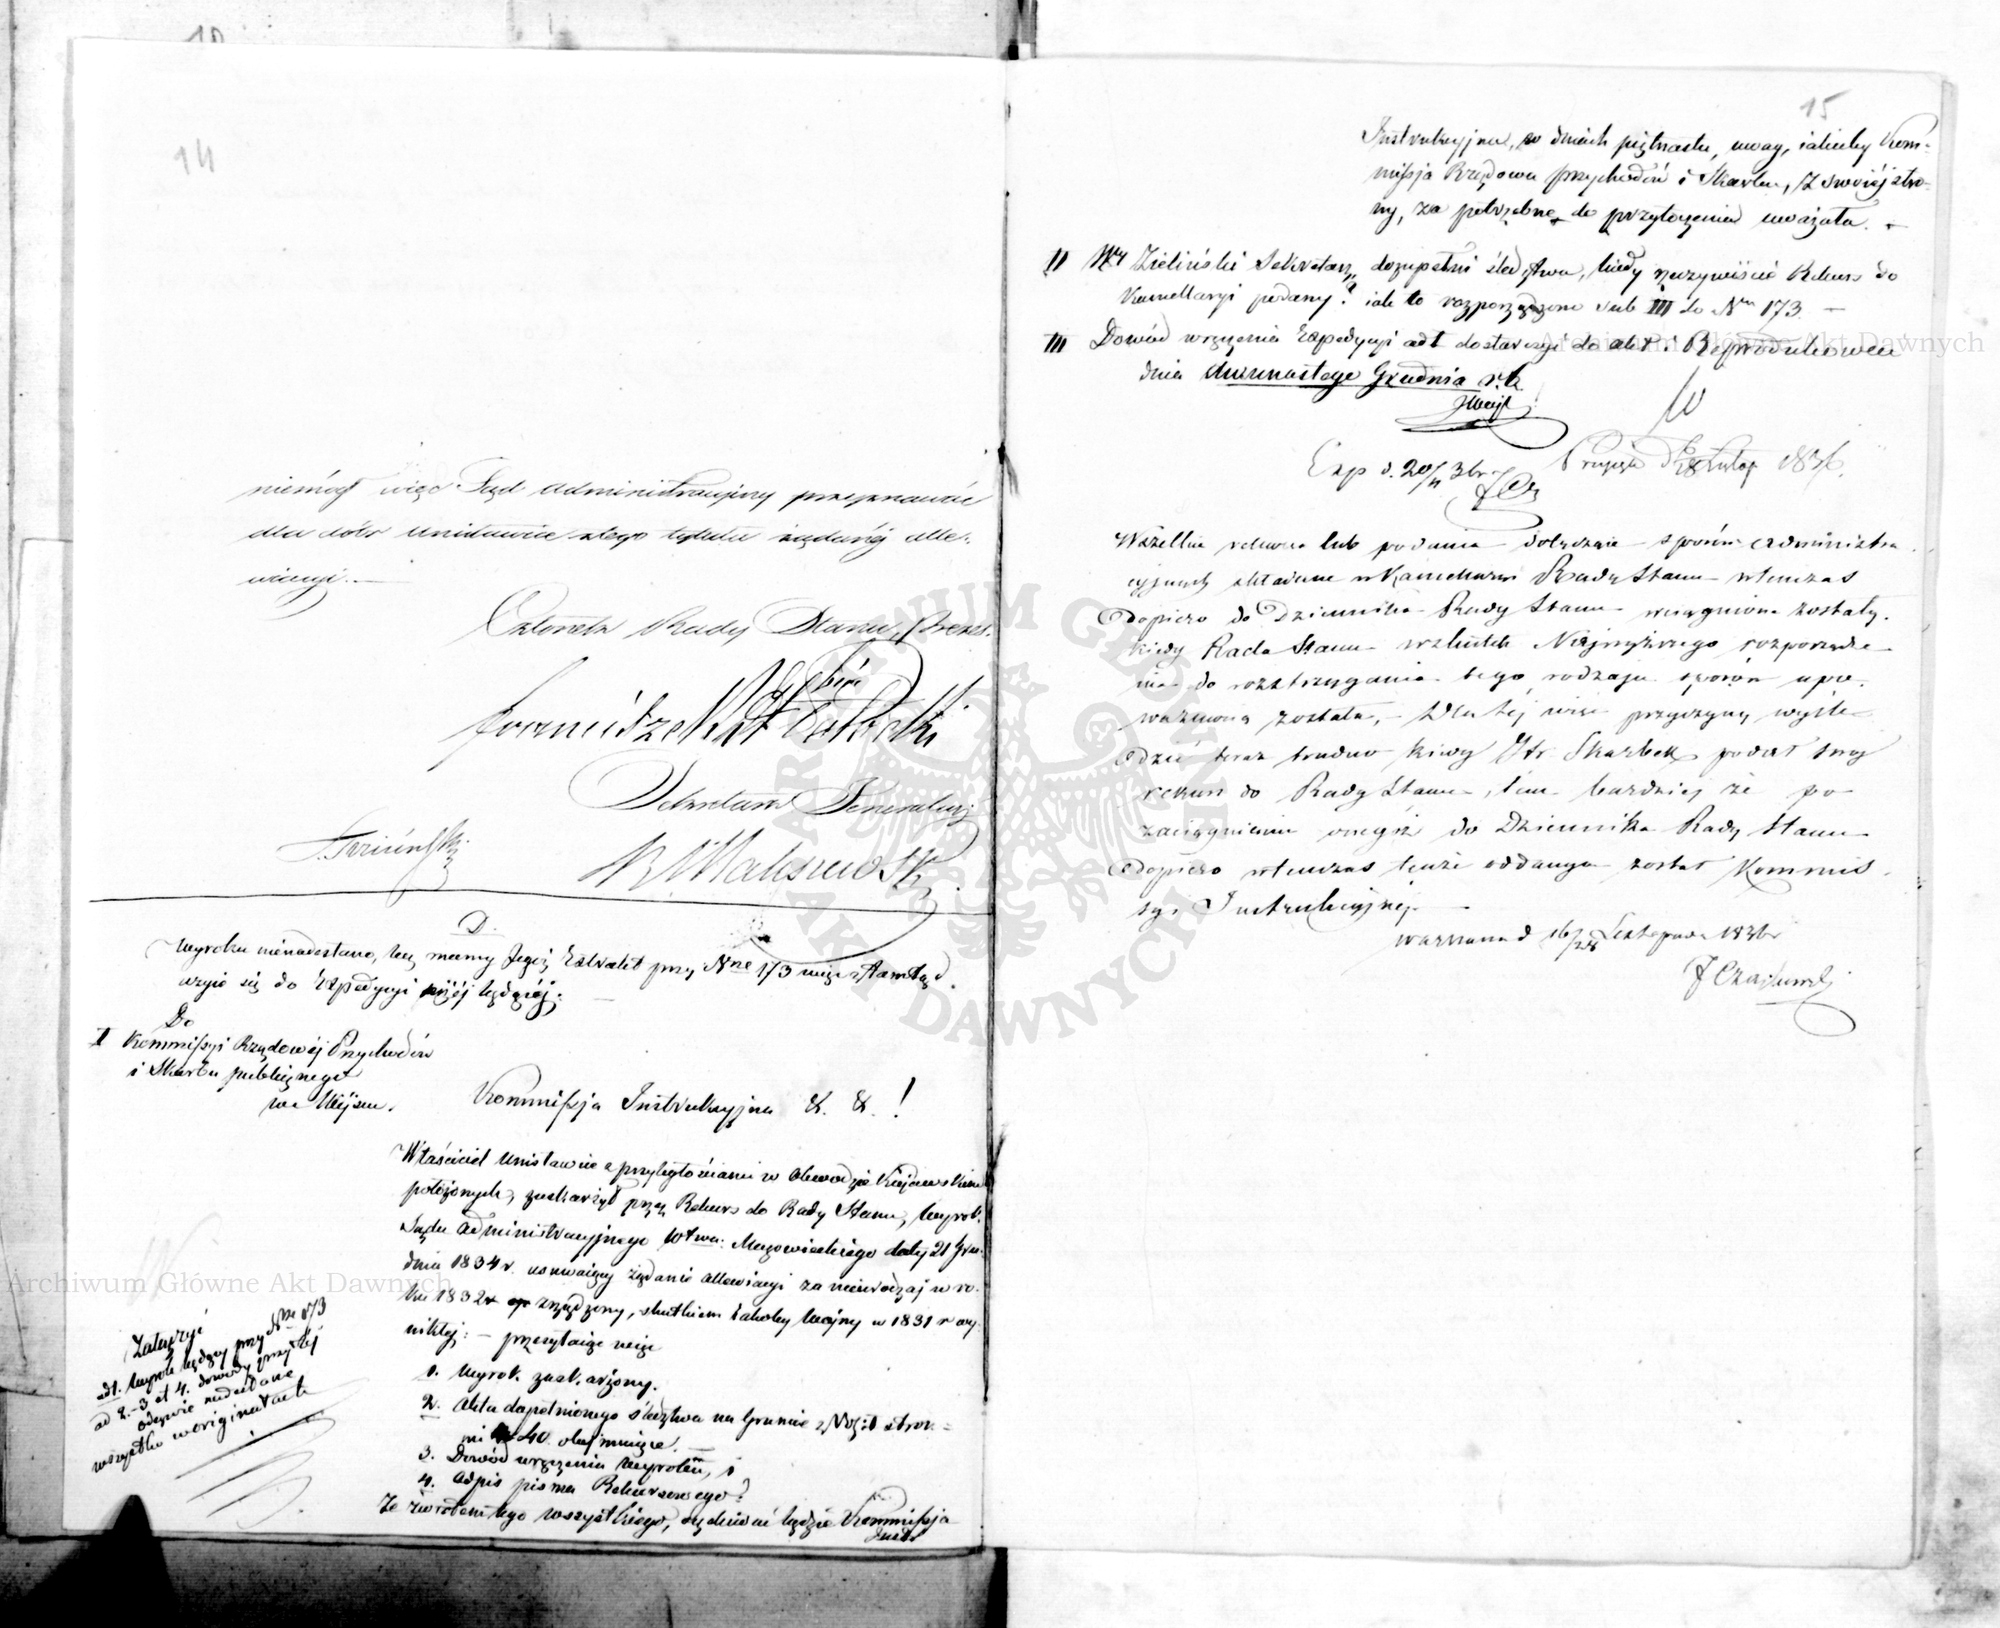 14
niemógł więc Sąd Administracyjny przyznawać
dla dóbr Unisławice z tego tytułu żądanéj alle-
wiacyi. —
Członek Rady Stanu, Prezes
Sekretarz Generalny
D.
Wyroku nienadesłano, lecz mamy Jegoż przy Nrze 173 więc ztamtąd
wziąć się do Expedycyi będącéj.
Do
I Kommissyi Rządowéj Przychodów
i Skarbu publicznego
w Miejscu.
Kommissja Instrukcyjna &. &. !
Właściciel Unisławic z przyległościami w Obwodzie Kujawskim
położonych, zaskarżył przez Rekurs do Rady Stanu, wyrok
Sądu Administracyjnego Wtwa: Mazowieckiego daty 21 Gru-
dnia 1834 r. usuwaiący żądanie allewiacyi za nieurodzaj w ro-
ku 1832 zrządzony, skutkiem wojny w 1831 r wy-
nikłej: — przesyłaiąc więc
1. Wyrok zaskarżony.
2. Akta dopełnionego śledztwa na gruncie stron-
ni 40. obejmuiące. —
3. Dowód wręczenia wyroku, i
4. Odpis pisma Rekursowego
Ze zwrotem tego wszystkiego, oczekiwać będzie Kommissja
Instr
Załączyć
ad 1. Wyrok będący przy Nrze 173
ad 2.-3 et 4. dowody przy téj
odezwie nadesłane
wszystko w originałach
15
Instrukcyjna, w dniach piętnastu, uwag, iakieby Kom-
missja Rządowa Przychodów i Skarbu, z swoiéj stro-
ny, za potrzebne do przytoczenia uważała. —
II Zieliński Sekretarz dozupełni śledztwa, kiedy rzeczywiście Rekurs do
Kancellaryi podany? iak to rozporządzono sub III do Nru 173. —
III Dowód wręczenia Expedycyi ad I dostarczyć do akt i Reprodukować
dnia dwunastego Grudnia r. b.
Exp d. 20/11 36 r
1836.
Wszelkie rekursa lub podania dotyczące sporów administra
cyjnych składane w Kancellaryi Rady Stanu wtenczas
dopiero do Dziennika Rady Stanu wciągnione zostały.
kiedy Rada Stanu wskutek Najwyższego rozporządze-
nia do rozstrzygania tego rodzaju sporów upo-
ważnioną została, — Dla tej więc przyczyny wyśle-
dzić teraz trudno kiedy Hr. Skarbek podał swoj
rekurs do Rady Stanu, tém bardziej że po
zaciągnieniu onegoż do Dziennika Rady Stanu
dopiero wtenczas tenże oddanym został Kommis
syi Instrukcyjnej. —
Warszawa d 16/28 Listopada 1836
Archiwum Główne Akt Dawnych
Archiwum Główne Akt Dawnych
ARCHIWUM GŁÓWNE
AKT DAWNYCH